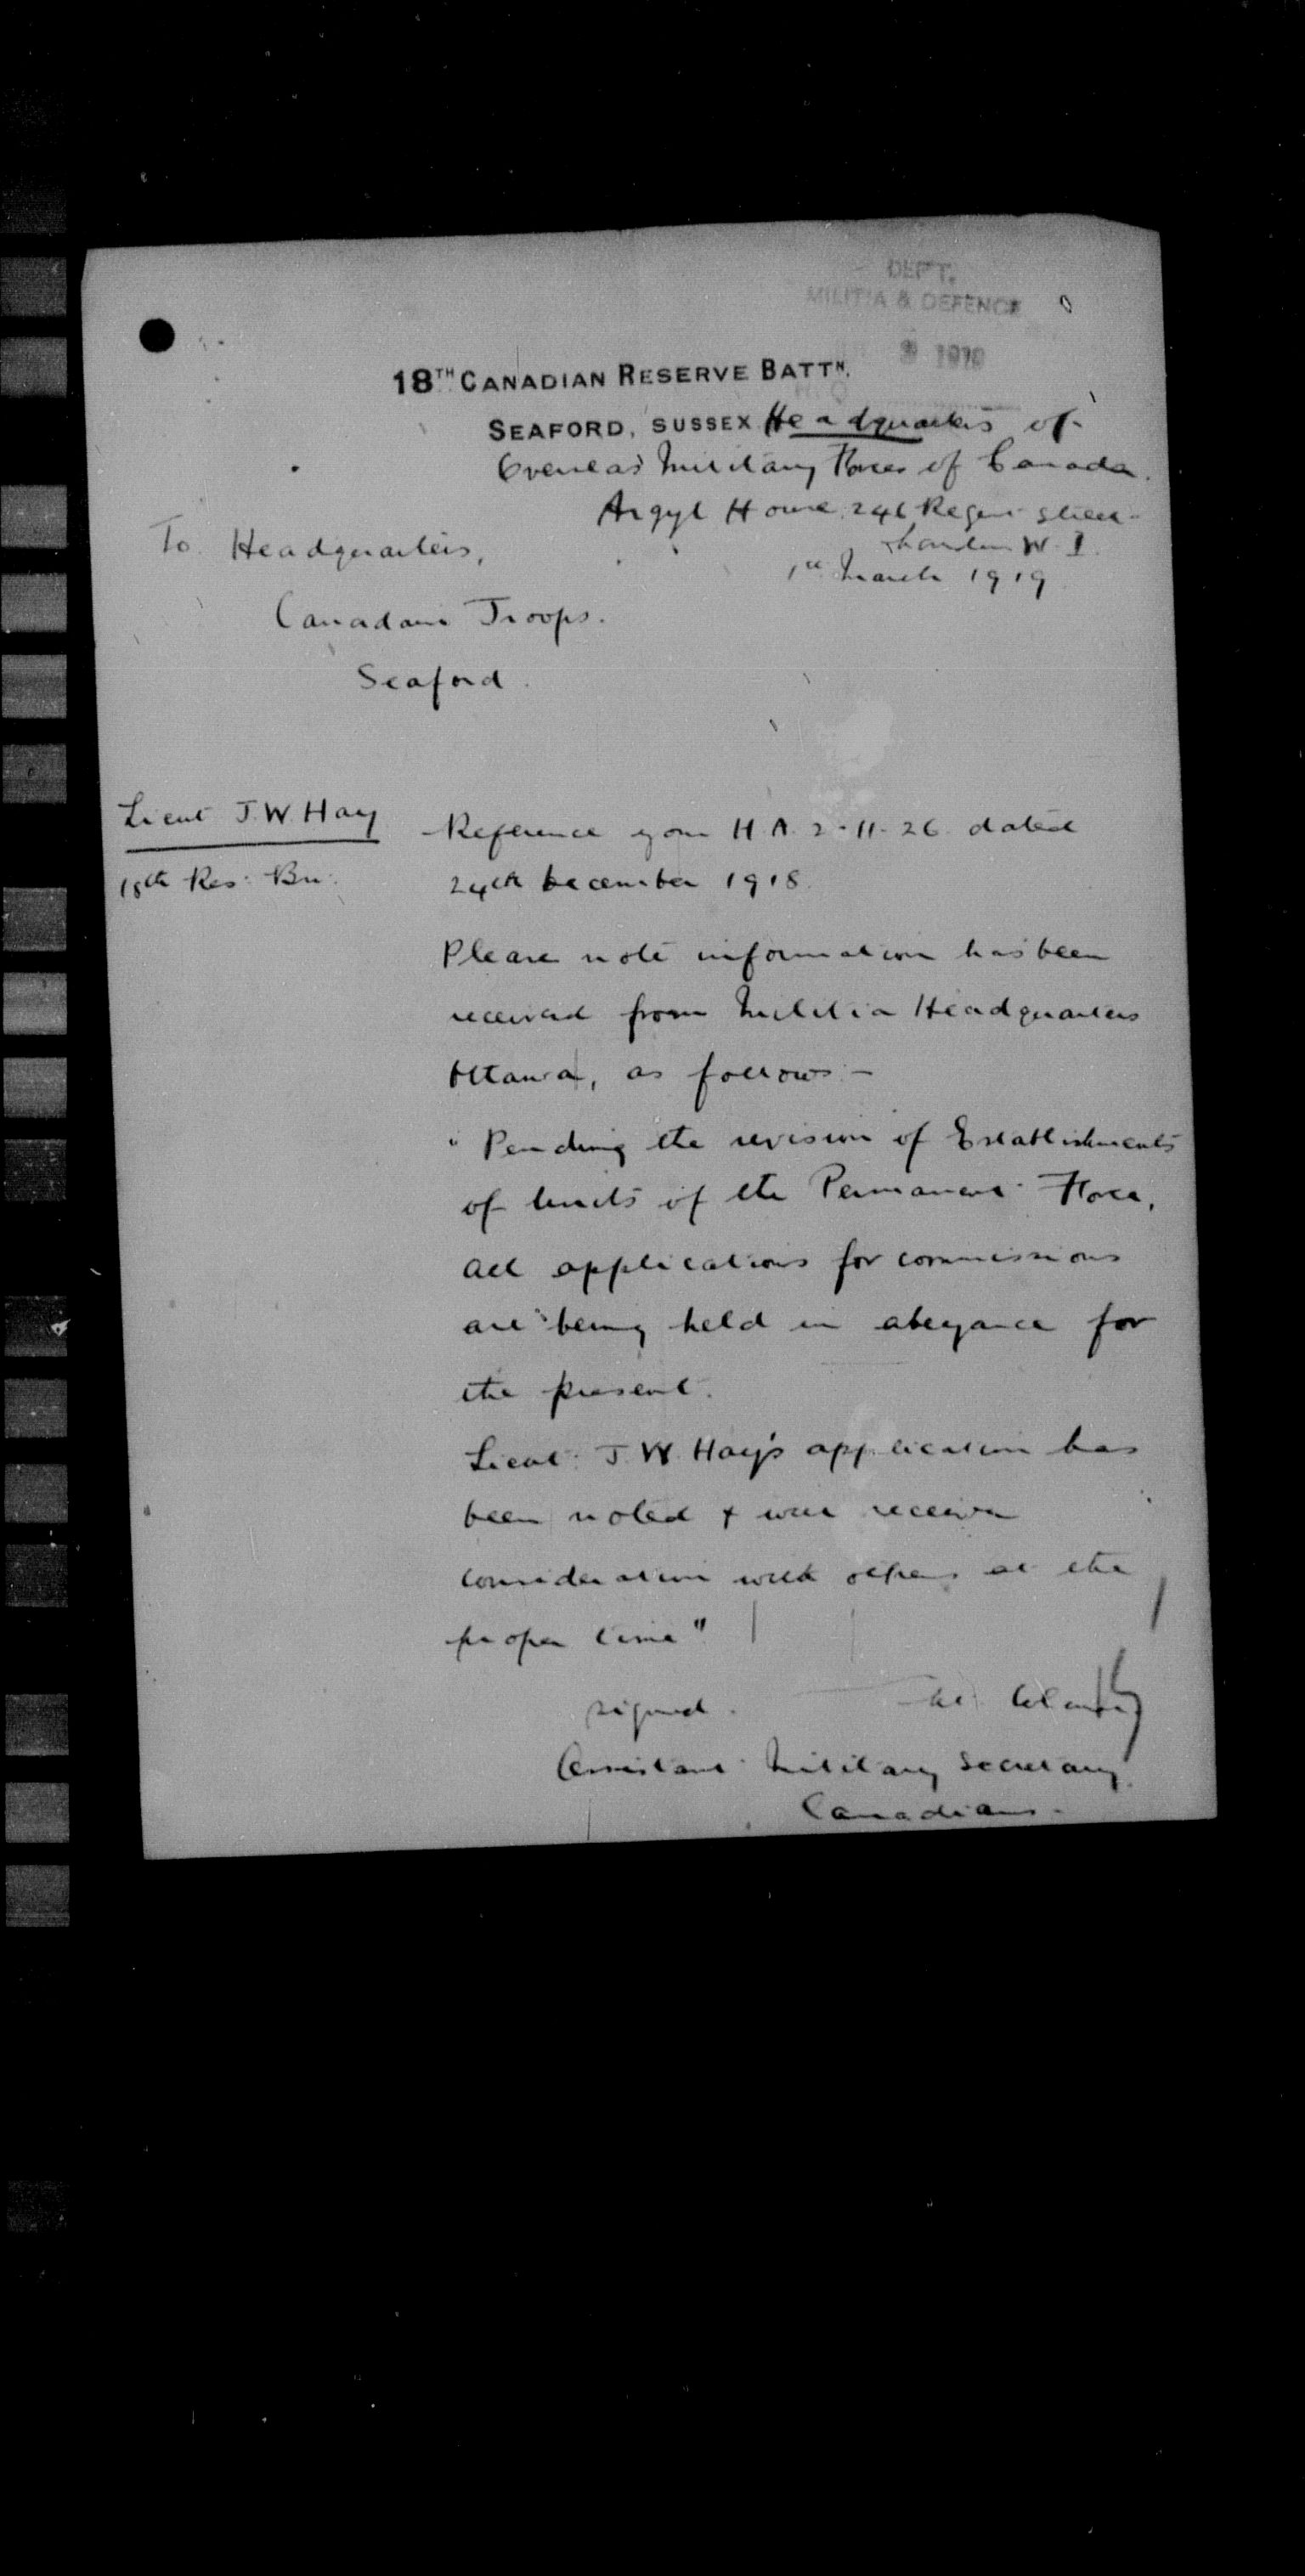 DEPT.
MILITIA & DEFENCE
1919
18TH CANADIAN RESERVE BATTN.
SEAFORD, SUSSEX Headquarters of
Overseas Military Forces of Canada.
Argyl House 246 Regent Street
London W. 1.
1st March 1919
To Headquarters,
Canadian Troops.
Seaford.
Lieut J. W. Hay
18th Res. Bn.
Reference your H A 2-11-26 dated
24th December 1918.
Please note information has been
received from Militia Headquarters
Ottawa, as follows:-
"Pending the revision of Establishments
of Units of the Permanent Force,
all applications for commissions
are being held in abeyance for
the present.
Lieut. J. W. Hay's application has
been noted & will receive
consideration with others at the
proper time"
signed.
Assistant Military Secretary.
Canadians.